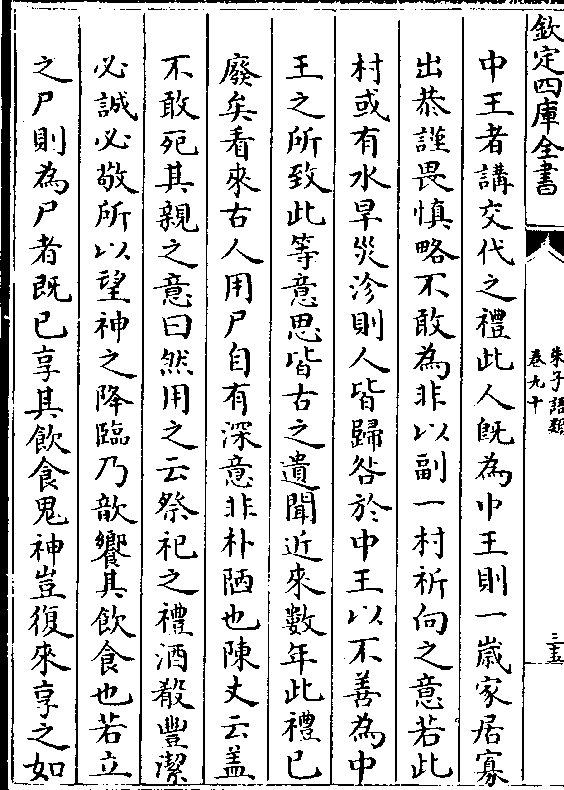 欽定四庫全書
朱子語類
卷九十
三五
中王者講交代之禮此人旣為中王則一嵗家居寡
出恭謹畏慎略不敢為非以副一村祈向之意若此
村或有水旱災沴則人皆歸咎於中王以不善為中
王之所致此等意思皆古之遺聞近來數年此禮已
廢矣看來古人用尸自有深意非朴陋也陳丈云盖
不敢死其親之意曰然用之云祭祀之禮酒殽豐潔
必誠必敬所以望神之降臨乃歆饗其飲食也若立
之尸則為尸者既已享其飲食鬼神豈復來享之如